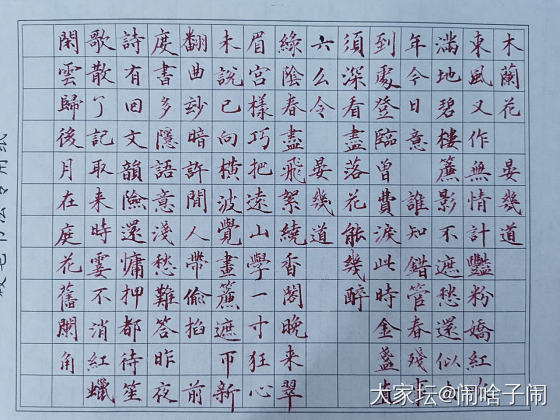 木蘭花 晏幾道
東風又作無情計豔粉嬌紅
滿地碧樓簾影不遮愁還似
年今日意 誰知錯管春殘
到處登臨曾費淚此時金盞
須深看盡落花能幾醉
六么令 晏幾道
綠陰春盡飛絮繞香閣晚来翠
眉宮樣巧把遠山學一寸狂心
未說已向橫波覺畫簾遮帀新
翻曲玅暗許閒人帶偷掐前
度書多隱語意淺愁難答昨夜
詩有回文韻險還慵押都待笙
歌散了記取来時霎不消紅蠟
閑雲歸後月在庭花舊闌角
大家坛@闹啥子闹